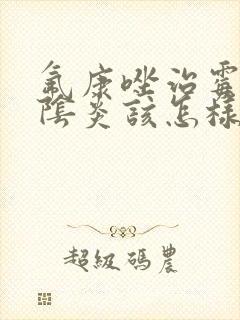 氟康唑治霉
陰炎該怎樣
超級碼農